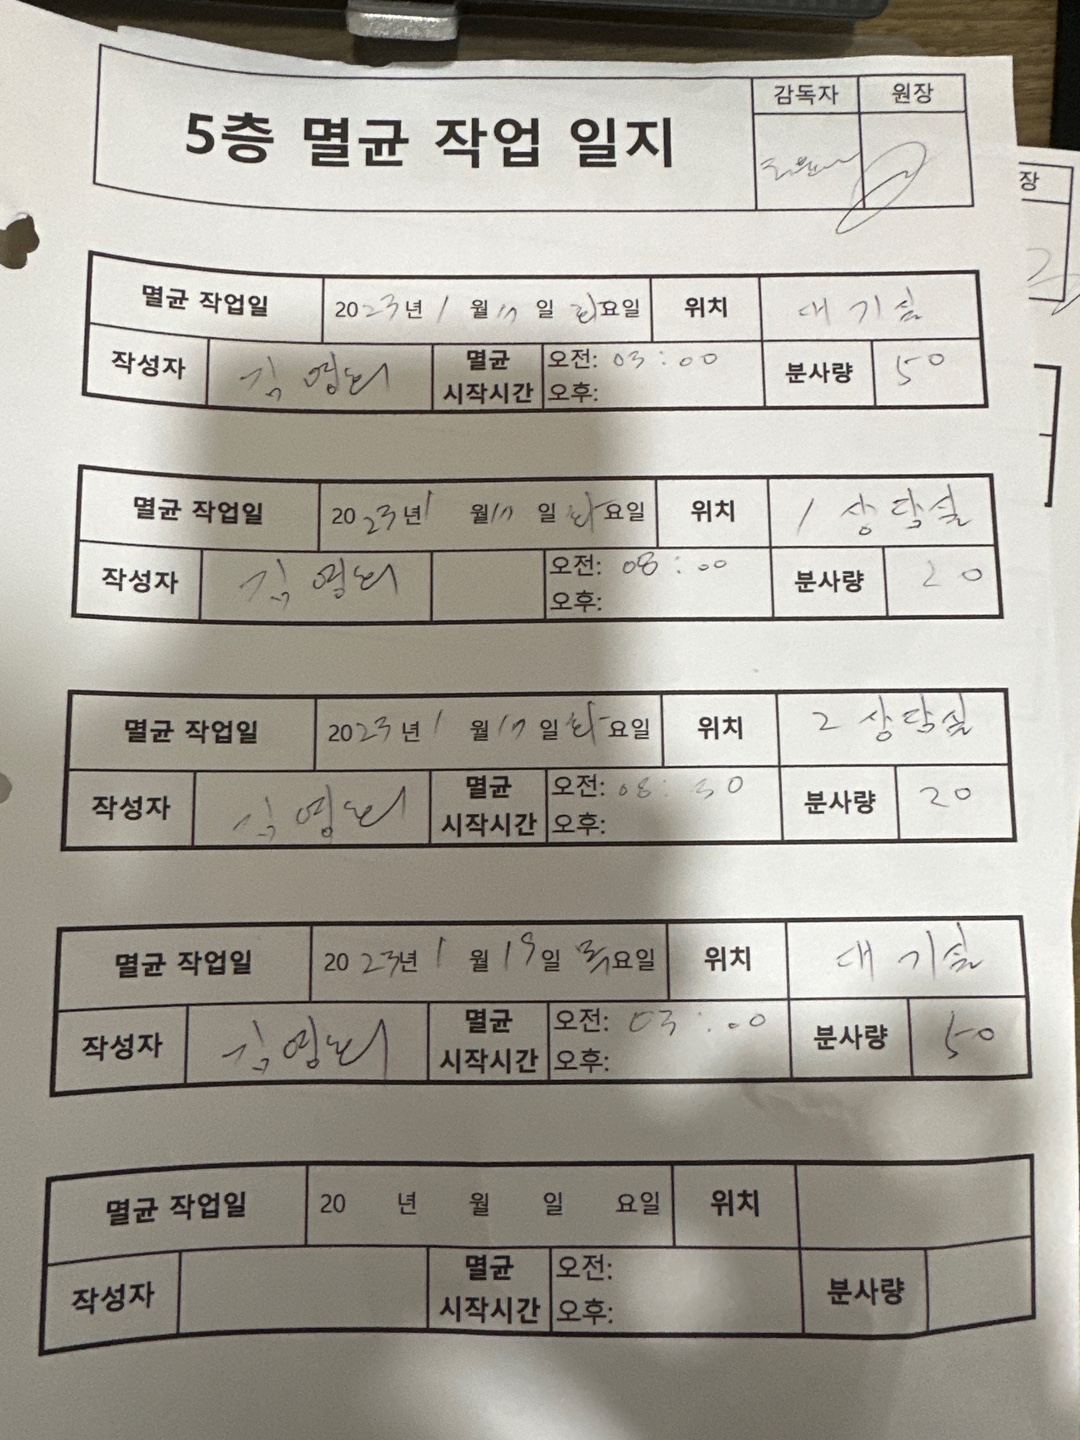 5층 멸균 작업 일지
감독자 원장
장
멸균 작업일 2023년 1월 17일 화요일 위치 대기실
작성자 멸균 시작시간 오전: 03:00 오후: 분사량 50
멸균 작업일 2023년 1월 17일 화요일 위치 1 상담실
작성자 오전: 08:00 오후: 분사량 20
멸균 작업일 2023년 1월 17일 화요일 위치 2 상담실
작성자 멸균 시작시간 오전: 08:30 오후: 분사량 20
멸균 작업일 2023년 1월 19일 목요일 위치 대기실
작성자 멸균 시작시간 오전: 03:00 오후: 분사량 50
멸균 작업일 20 년 월 일 요일 위치
작성자 멸균 시작시간 오전: 오후: 분사량